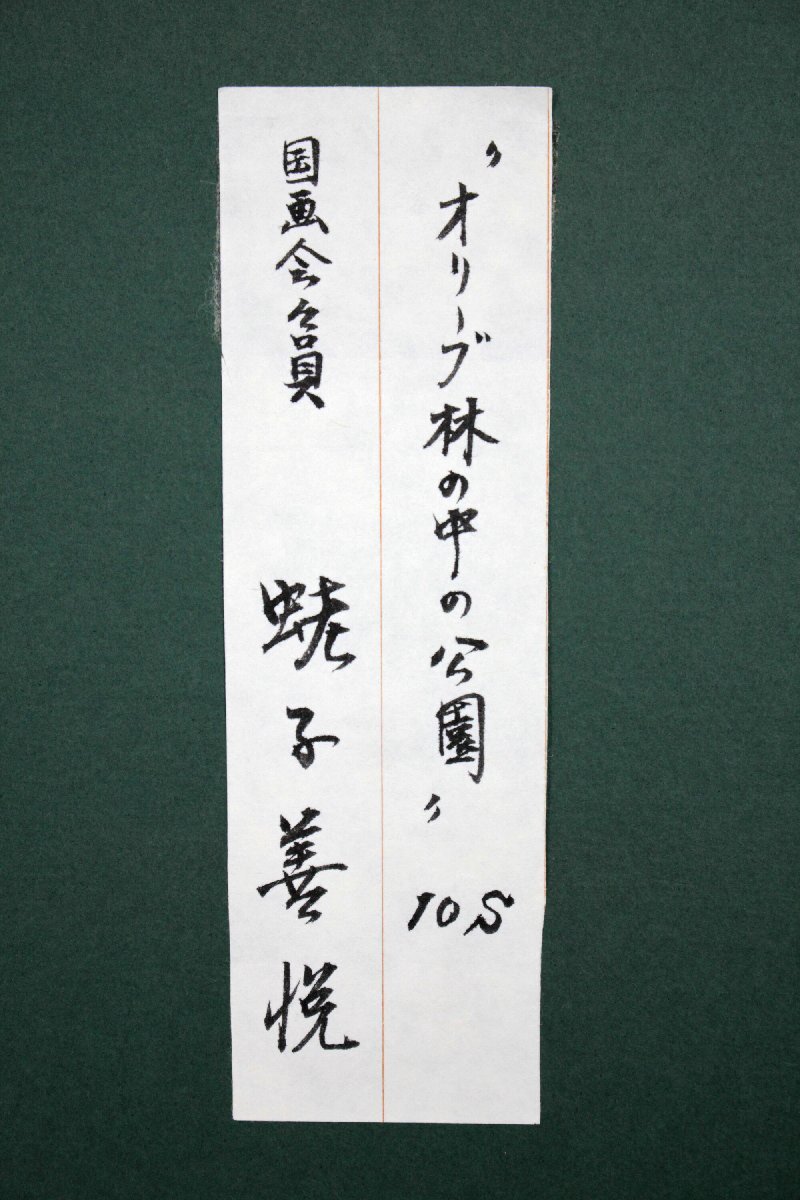 〝オリーブ林の中の公園〟 10S
国画会々員 蛯子善悦